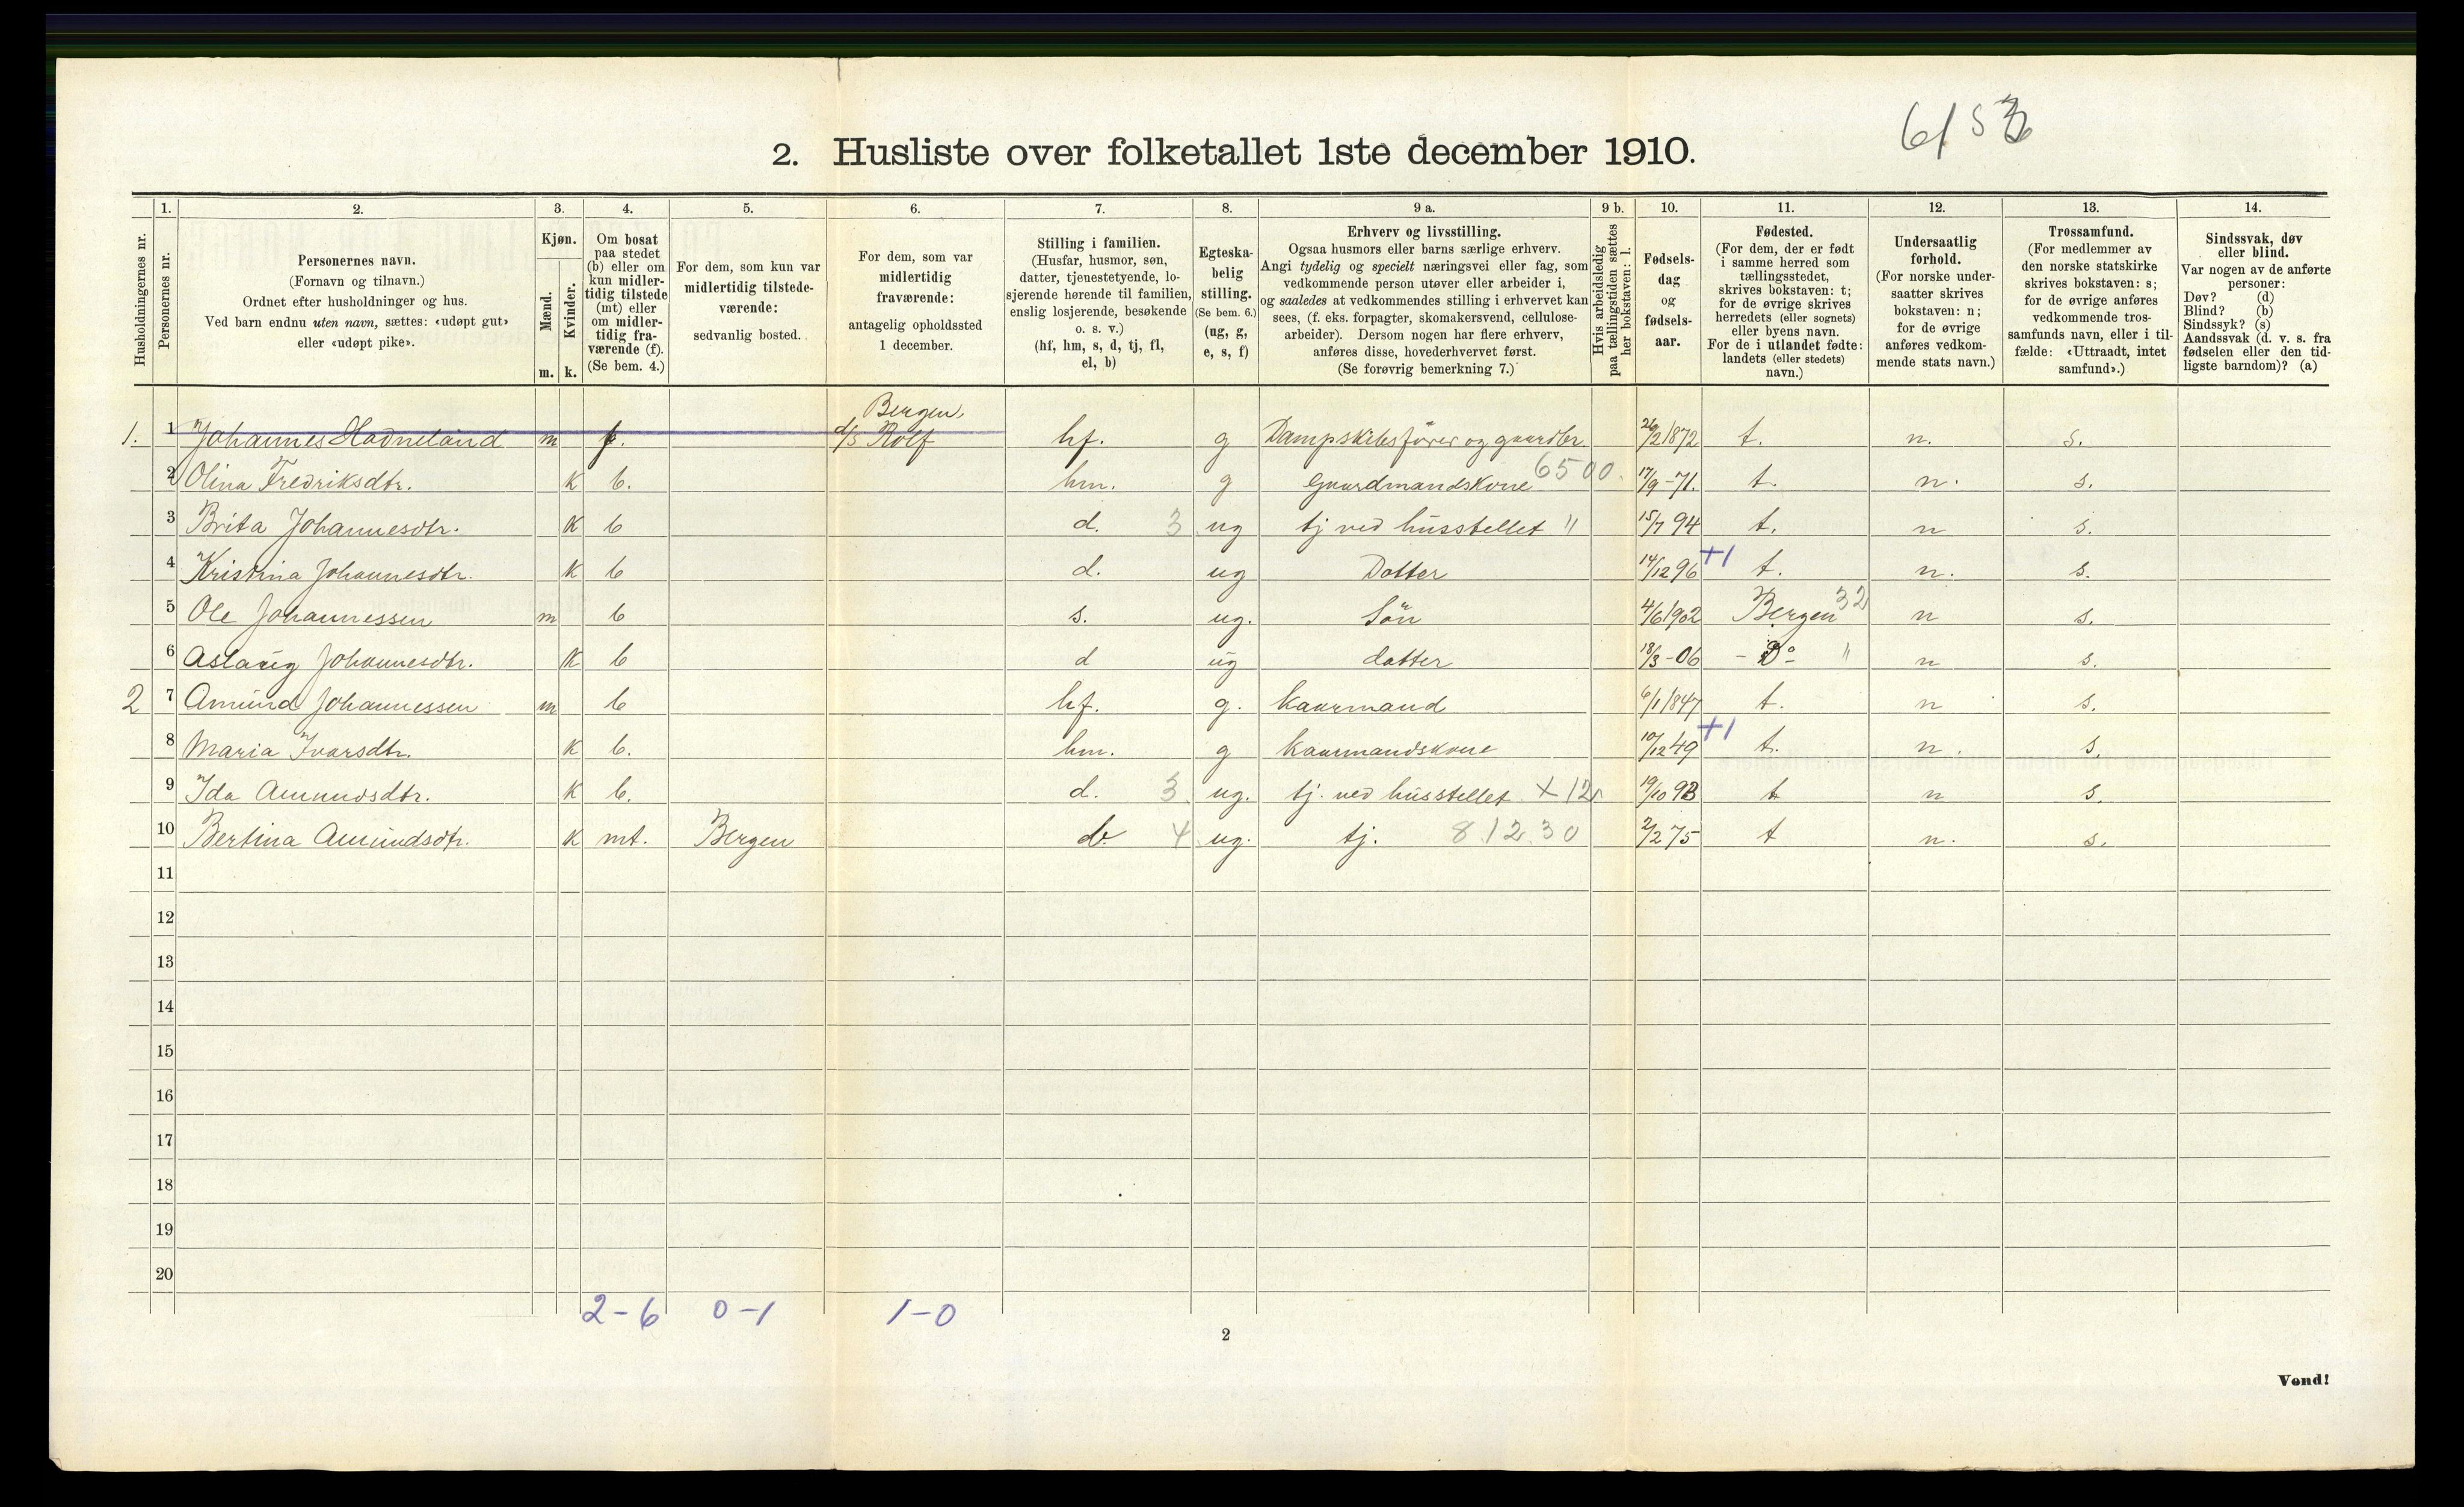 2. Husliste over folketallet 1ste december 1910.
Husholdningernes nr.
1.
Personernes nr.
2.
Personernes navn.
(Fornavn og tilnavn.)
Ordnet efter husholdninger og hus.
Ved barn endnu uten navn, sættes: «udøpt gut»
eller «udøpt pike».
3.
Kjøn.
Mænd.
Kvinder.
m. k.
4.
Om bosat
paa stedet
(b) eller om
kun midler-
tidig tilstede
(mt) eller
om midler-
tidig fra-
værende (f).
(Se bem. 4.)
5.
For dem, som kun var
midlertidig tilstede-
værende:
sedvanlig bosted.
6.
For dem, som var
midlertidig
fraværende:
antagelig opholdssted
1 december.
7.
Stilling i familien.
(Husfar, husmor, søn,
datter, tjenestetyende, lo-
sjerende hørende til familien,
enslig losjerende, besøkende
o. s. v.)
(hf, hm, s, d, tj, fl,
el, b)
8.
Egteska-
belig
stilling.
(Se bem. 6.)
(ug, g,
e, s, f)
9 a.
Erhverv og livsstilling.
Ogsaa husmors eller barns særlige erhverv.
Angi tydelig og specielt næringsvei eller fag, som
vedkommende person utøver eller arbeider i,
og saaledes at vedkommendes stilling i erhvervet kan
sees, (f. eks. forpagter, skomakersvend, cellulose-
arbeider). Dersom nogen har flere erhverv,
anføres disse, hovederhvervet først.
(Se forøvrig bemerkning 7.)
9 b.
Hvis arbeidsledig
paa tællingstiden sættes
her bokstaven: l.
10.
Fødsels-
dag
og
fødsels-
aar.
11.
Fødested.
(For dem, der er født
i samme herred som
tællingsstedet,
skrives bokstaven: t;
for de øvrige skrives
herredets (eller sognets)
eller byens navn.
For de i utlandet fødte:
landets (eller stedets)
navn.)
12.
Undersaatlig
forhold.
(For norske under-
saatter skrives
bokstaven: n;
for de øvrige
anføres vedkom-
mende stats navn.)
13.
Trossamfund.
(For medlemmer av
den norske statskirke
skrives bokstaven: s;
for de øvrige anføres
vedkommende tros-
samfunds navn, eller i til-
fælde: «Uttraadt, intet
samfund».)
14.
Sindssvak, døv
eller blind.
Var nogen av de anførte
personer:
Døv? (d)
Blind? (b)
Sindssyk? (s)
Aandssvak (d. v. s. fra
fødselen eller den tid-
ligste barndom)? (a)
Bergen,
1. 1 Johannes Hadneland m f. d/s Rolf hf. g Dampskibsfører og gaardbr. 26/2 1872 t. n. s.
2 Olina Fredriksdtr. k b. hm. g Gaardmandskone 6500. 17/9 -71. t. n. s.
3 Brita Johannesdtr. k b d. 3 ug tj ved husstellet " 15/7 94 t. n s.
4 Kristina Johannesdtr. k b d. ug Datter 14/12 96 +1 t. n. s.
5 Ole Johannessen m b s. ug. Søn 4/6 1902 Bergen 32 n s.
6 Aslaug Johannesdtr. k b d ug datter 18/3 -06 - Do - " n s.
2 7 Amund Johannessen m b hf. g. kaarmand 6/1 1847 t. n s.
8 Maria Ivarsdtr. k b. hm. g kaarmandskone 10/12 49 +1 t. n. s.
9 Ida Amundsdtr. k b. d. 3. ug. tj. ved husstellet + 12 19/10 93 t n s.
10 Bertina Amundsdtr. k mt. Bergen d. 4 ug. tj. 8 12 30 2/2 75 t n. s.
11
12
13
14
15
16
17
18
19
20
2-6 0-1 1-0
2
Vend!